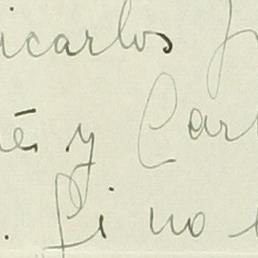 icarlos
é y Car
. Si no